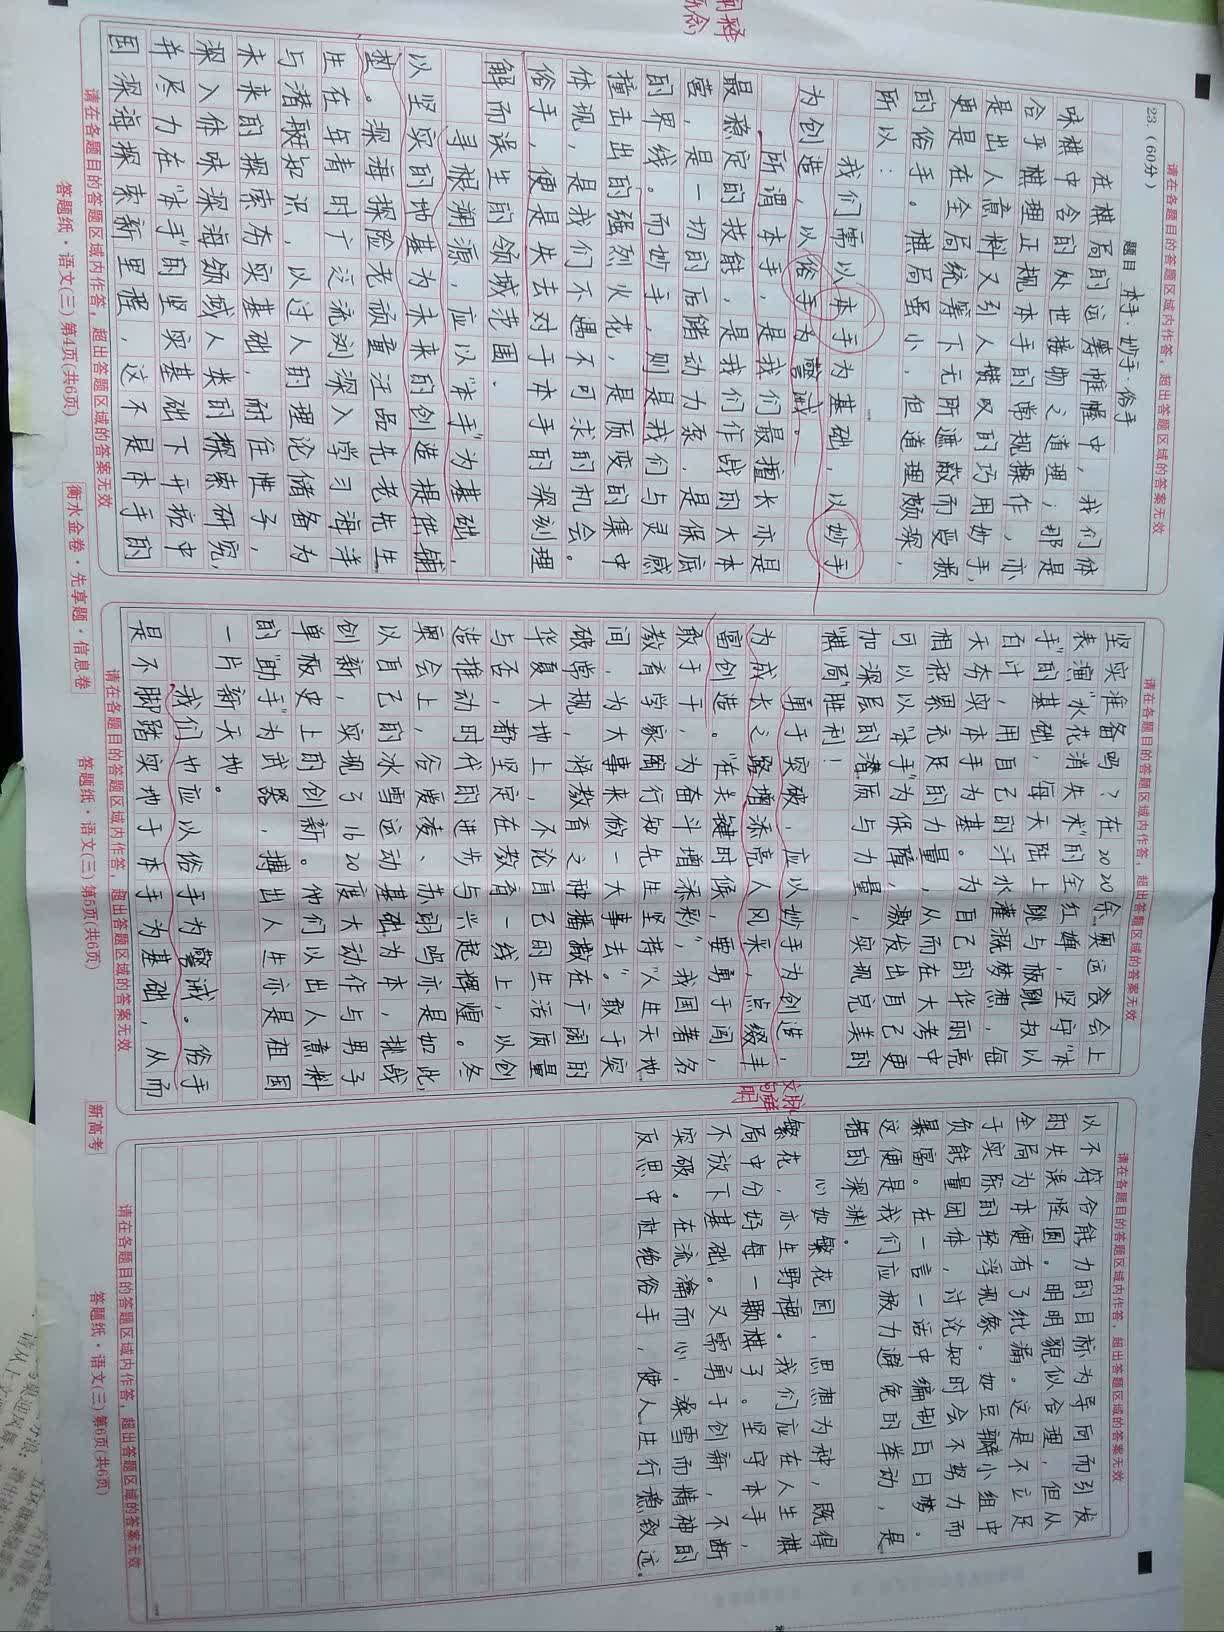 请在各题目的答题区域内作答，超出答题区域的答案无效
23.（60分）
题目 本手·妙手·俗手
在棋局的运筹帷幄中，我们体
味棋中含的处世接物之道理；那是
合乎棋理正规本手的常规操作，亦
是出人意料又引人惊叹的巧用妙手，
更是在全局统筹下无所遮蔽而受损
的俗手。棋局虽小，但道理颇深，
所以：
我们需以本手为基础，以妙手
为创造，以俗手为警戒。
所谓本手，是我们最擅长亦是
最稳定的技能，是我们作战的大本
营，是一切的后储动力泵，是保底
的界线。而妙手，则是我们与灵感
撞击出的强烈火花，是质变的集中
体现，是我们不遇不可求的机会。
俗手，便是失去对于本手的深刻理
解而误生的领域范围.
寻根溯源，应以“本手”为基础，
以坚实的地基为未来的创造提供铺
垫。深海探险老顽童汪品先老先生
生在年青时广泛流浏深入学习海洋
与潜艇知识，以过人的理论储备为
未来的探索夯实基础，耐住性子，
深入体味深海领域人类的探索研究，
并尽力在“本手”的坚实基础下开拓中
国深海探索新里程，这不是本手的
请在各题目的答题区域内作答，超出答题区域的答案无效
答题纸·语文(三) 第4页(共6页)
阐释
概念
请在各题目的答题区域内作答，超出答题区域的答案无效
坚实准备吗？在2020余奥运会会上
表演“水花消失术”的全红婵，坚守“本
手”的基础，每天陆上跳与板跳数以
百计，用自己的汗水灌溉梦想，每
天夯实本手为基。为自己的华丽亮
相积累充足的力量，从而在大考中
可以以“本手”为保障，激发出自己更
加深层的潜质与力量，实现完美的
“棋局”胜利！
勇于突破，应以妙手为创造，
为成长之路增添亮人风采，点缀丰
富创造。“在关键时候，要勇于闯，
敢于干，为奋斗增添彩”，我国著名
教育学家陶行知先生坚持“人生天地
间，为大事来做一大事去”。敢于实
破常规，将教育之种播撒在广阔的
华夏大地上，不论自己的生活质量
与否，都坚定在教育一线上，以创
造推动时代的进步与兴起辉煌。冬
奥会上，谷爱凌、苏翊鸣亦是如此，
以自己的冰雪运动基础为本，挑战
创新，实现了1620度大动作与男子
单板史上的创新。他们以出人意料
的“助手”为武器，搏出人生亦是祖国
一片新天地。
我们也应以俗手为警戒。俗手
是不脚踏实地于本手为基础，从而
请在各题目的答题区域内作答，超出答题区域的答案无效
衡水金卷·先享题·信息卷
答题纸·语文(三) 第5页(共6页)
新高考
请在各题目的答题区域内作答，超出答题区域的答案无效
以不符合能力的目标为导向而引发
的失误怪圈。明明貌似合理，但从
全局为本便有了纰漏。这是不立足
于实际的轻浮现像。如豆瓣小组中
负能量团体，讨论如时会不努力而
暴富。在一言一话中编制白日梦。
这便是我们应极力避免的举动，是
错的深渊。
心如繁花园，思想为种，既得
繁花，亦生野稗。我们应在人生棋
局中分好每一颗棋子。坚守本手，
不放下基础。又需勇于创新，不断
突破。在流瀹而心，澡雪而精神的
反思中杜绝俗手，使人生行稳致远。
请在各题目的答题区域内作答，超出答题区域的答案无效
答题纸·语文(三) 第6页(共6页)